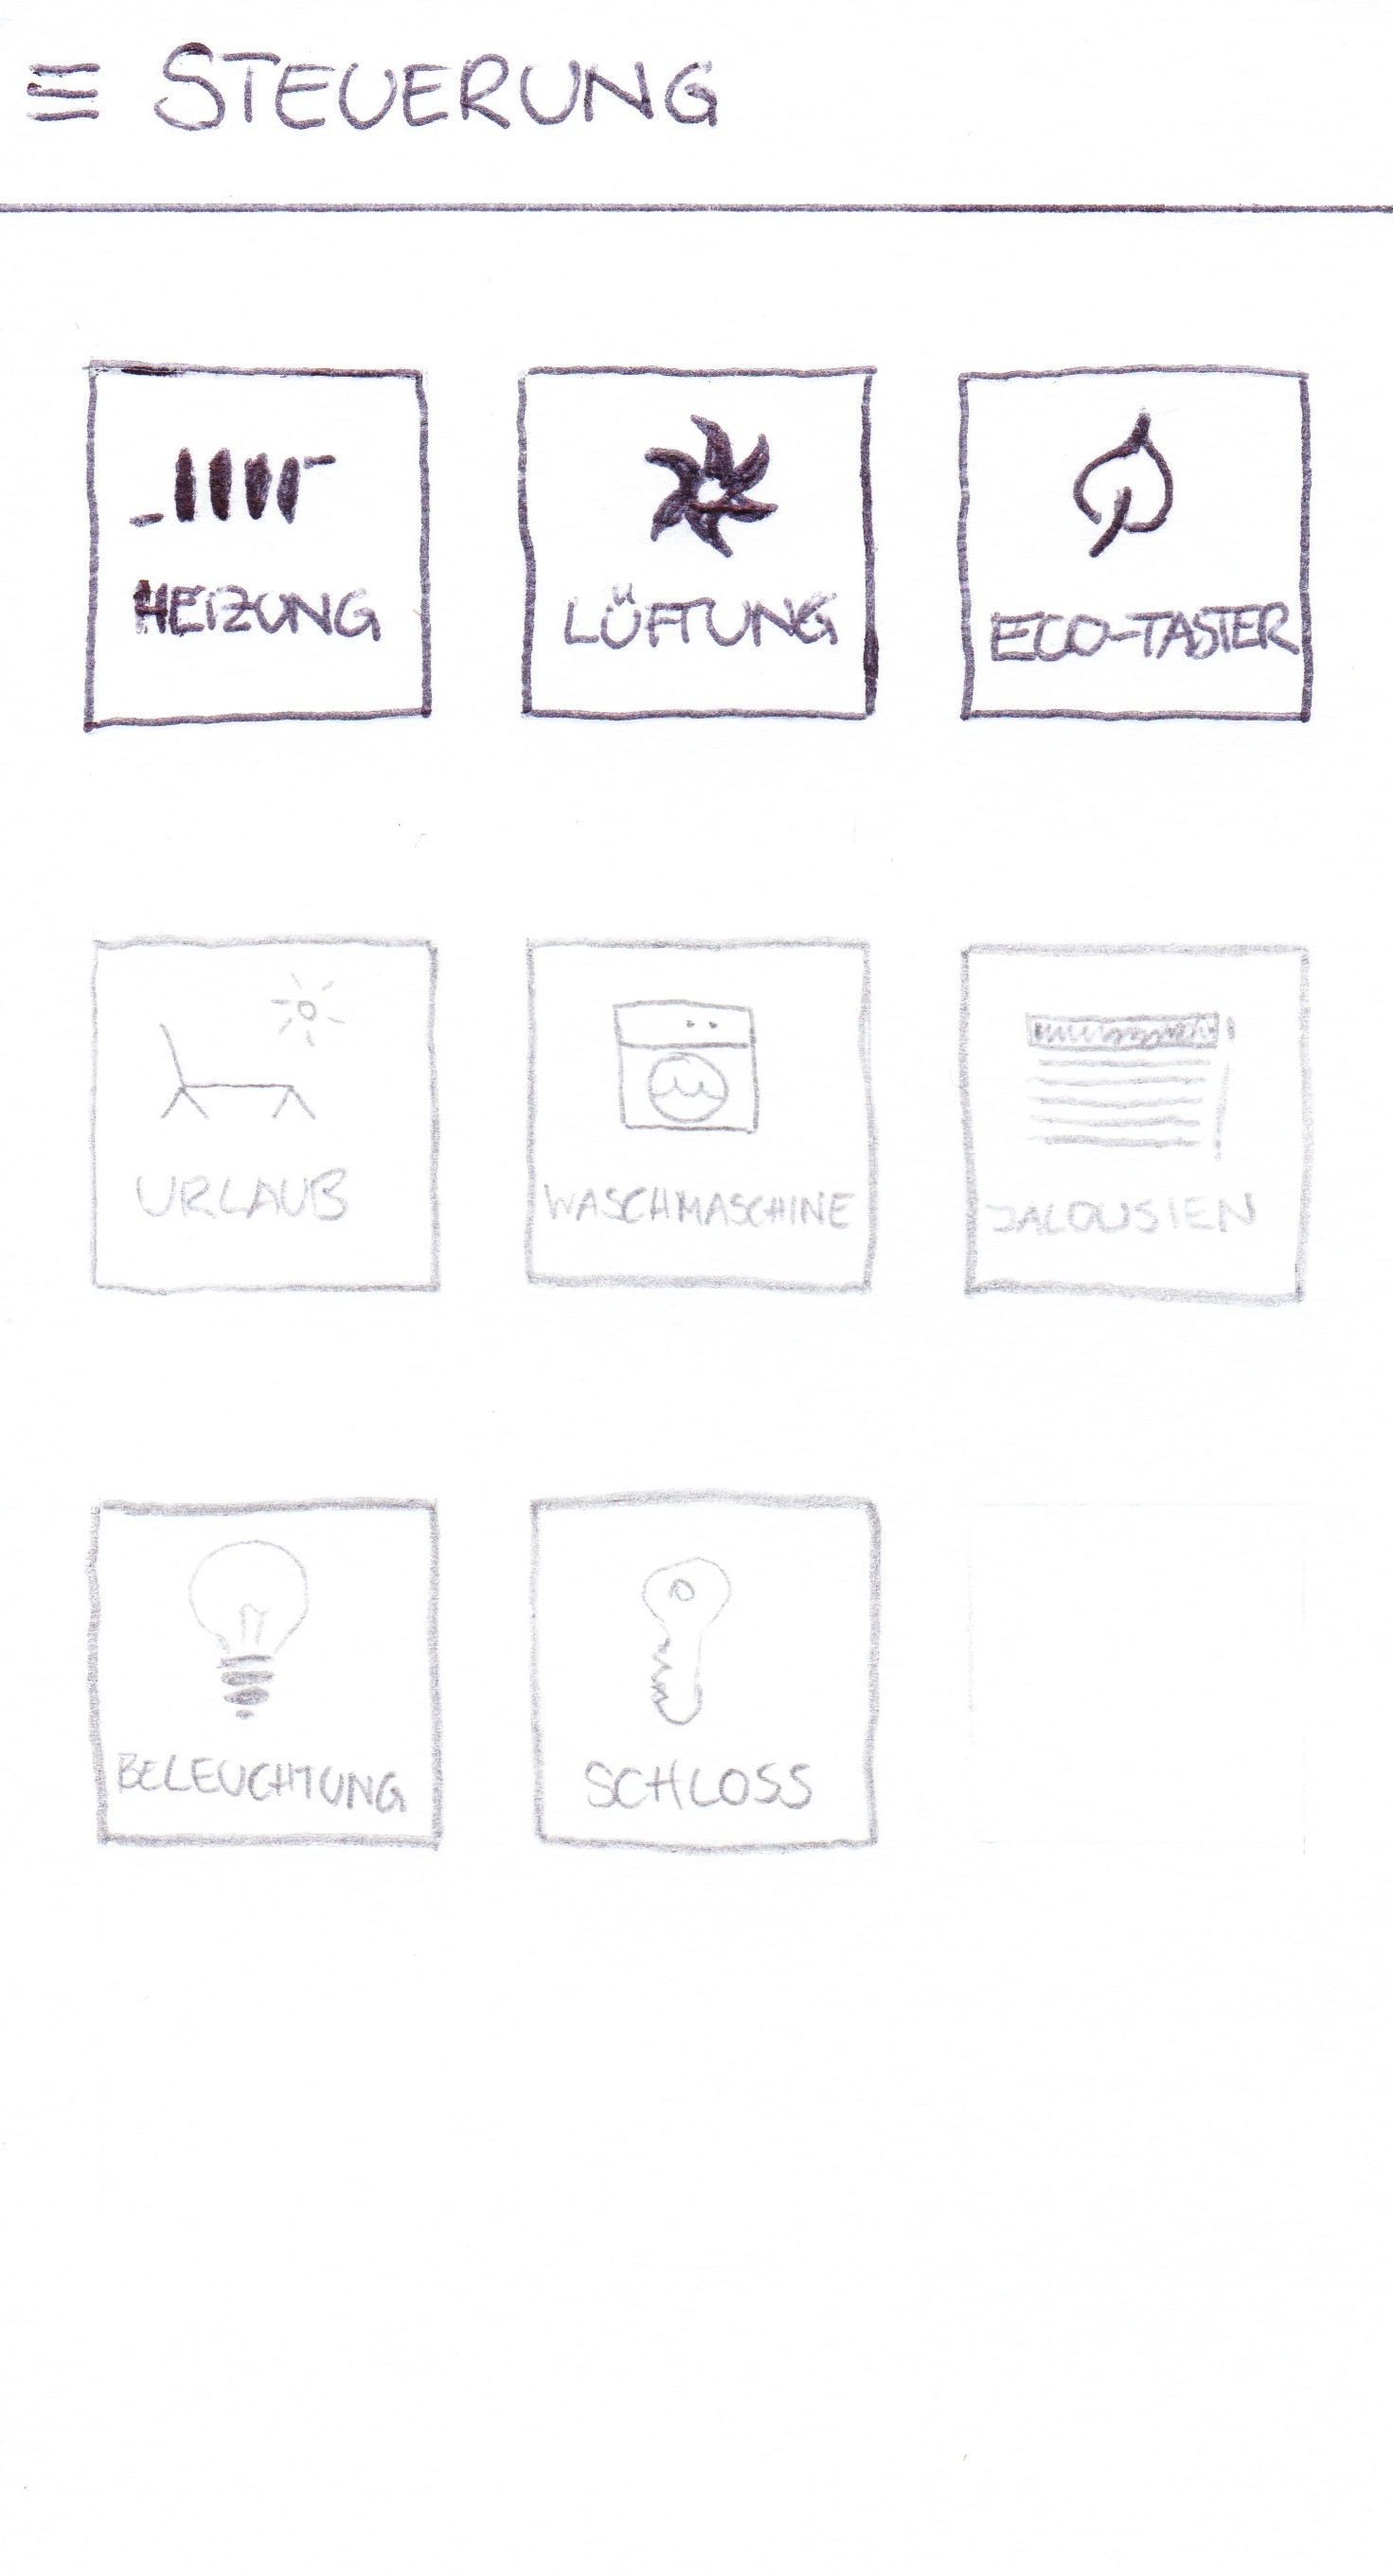 STEUERUNG
HEIZUNG
LÜFTUNG
ECO-TASTER
URLAUB
WASCHMASCHINE
JALOUSIEN
BELEUCHTUNG
SCHLOSS